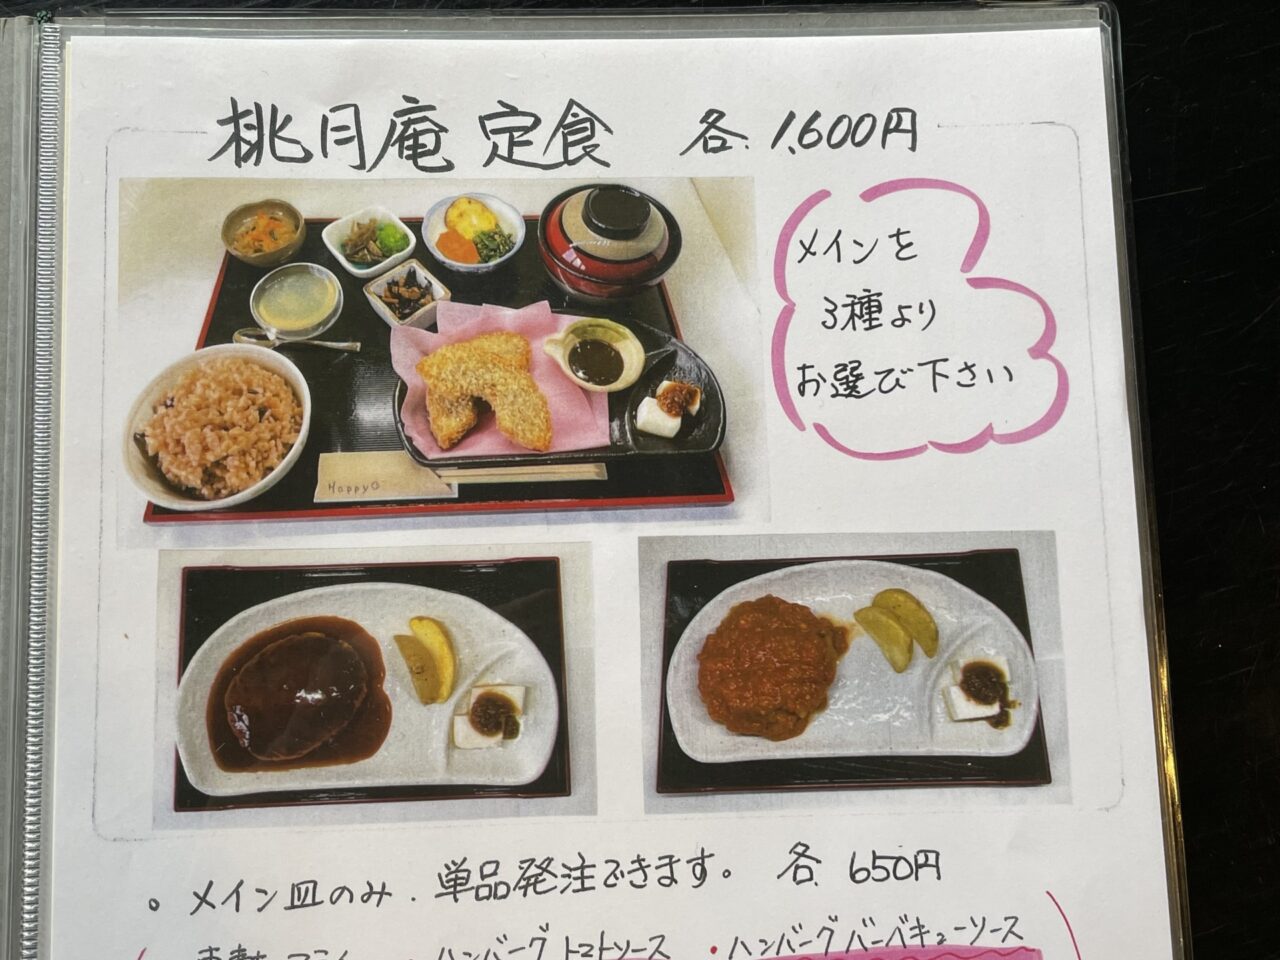 桃月庵 定食 各. 1,600円
メインを
3種より
お選び下さい
HappyO
。メイン皿のみ. 単品発注できます。 各 650円
・ハンバーグトマトソース ・ハンバーグバーベキューソース